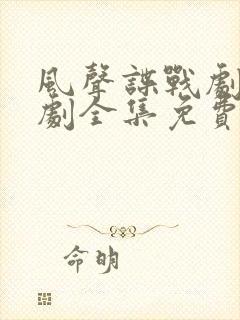 風聲諜戰劇
劇全集免費
命明